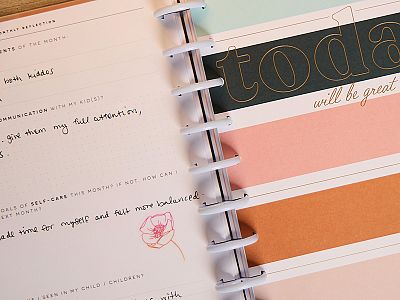 MONTHLY REFLECTION
ENTS OF THE MONTH:
both kiddos
COMMUNICATION WITH MY KID(S)?
give them my full attention,
OALS OF SELF-CARE THIS MONTH? IF NOT, HOW CAN I
NEXT MONTH?
ade time for myself and felt more balanced
I SEEN IN MY CHILD / CHILDREN?
with
toda
will be great